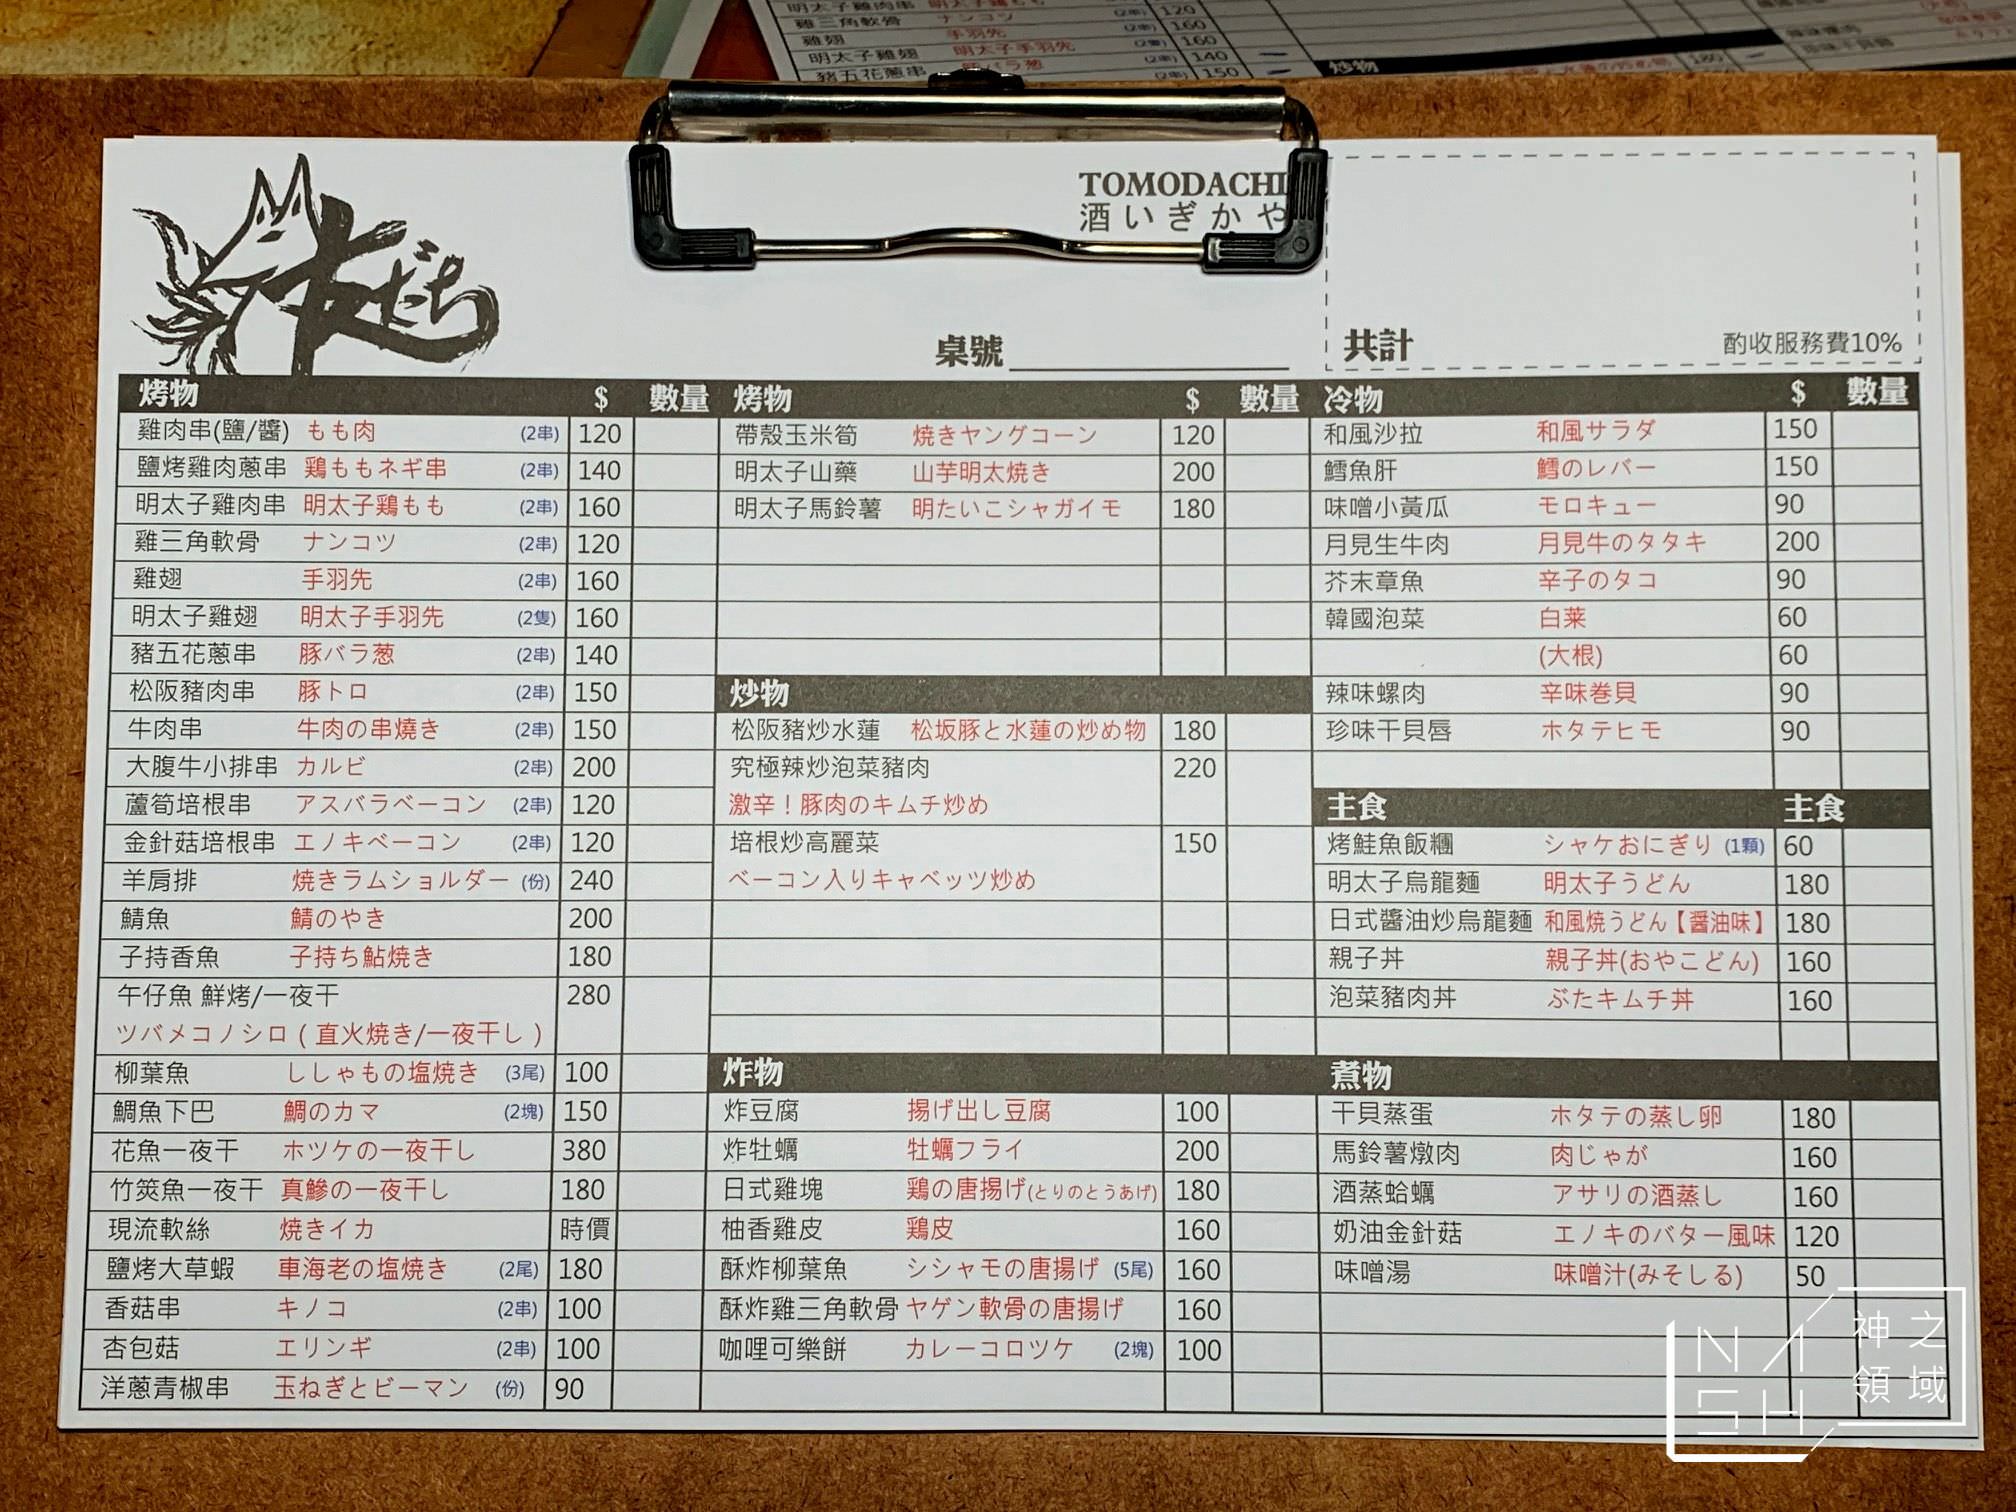 明太子雞肉串 明太子鶏もも (2串) 120
雞三角軟骨 ナンコツ (2串) 160
雞翅 手羽先 (2串) 160
明太子雞翅 明太子手羽先 (2隻) 140
豬五花蔥串 豚バラ葱 (2串) 150
炒物
180
友だち
TOMODACHI
酒いぎかや
桌號
共計 酌收服務費10%
烤物 $ 數量
雞肉串(鹽/醬) もも肉 (2串) 120
鹽烤雞肉蔥串 鶏ももネギ串 (2串) 140
明太子雞肉串 明太子鶏もも (2串) 160
雞三角軟骨 ナンコツ (2串) 120
雞翅 手羽先 (2串) 160
明太子雞翅 明太子手羽先 (2隻) 160
豬五花蔥串 豚バラ葱 (2串) 140
松阪豬肉串 豚トロ (2串) 150
牛肉串 牛肉の串燒き (2串) 150
大腹牛小排串 カルビ (2串) 200
蘆筍培根串 アスバラベーコン (2串) 120
金針菇培根串 エノキベーコン (2串) 120
羊肩排 焼きラムショルダー (份) 240
鯖魚 鯖のやき 200
子持香魚 子持ち鮎焼き 180
午仔魚 鮮烤/一夜干 280
ツバメコノシロ ( 直火焼き/一夜干し )
柳葉魚 ししゃもの塩焼き (3尾) 100
鯛魚下巴 鯛のカマ (2塊) 150
花魚一夜干 ホツケの一夜干し 380
竹筴魚一夜干 真鯵の一夜干し 180
現流軟絲 焼きイカ 時價
鹽烤大草蝦 車海老の塩焼き (2尾) 180
香菇串 キノコ (2串) 100
杏包菇 エリンギ (2串) 100
洋蔥青椒串 玉ねぎとビーマン (份) 90
烤物 $ 數量
帶殼玉米筍 焼きヤングコーン 120
明太子山藥 山芋明太焼き 200
明太子馬鈴薯 明たいこシャガイモ 180
炒物
松阪豬炒水蓮 松坂豚と水蓮の炒め物 180
究極辣炒泡菜豬肉 220
激辛！豚肉のキムチ炒め
培根炒高麗菜 150
ベーコン入りキャベッツ炒め
炸物
炸豆腐 揚げ出し豆腐 100
炸牡蠣 牡蠣フライ 200
日式雞塊 鶏の唐揚げ(とりのとうあげ) 180
柚香雞皮 鶏皮 160
酥炸柳葉魚 シシャモの唐揚げ (5尾) 160
酥炸雞三角軟骨 ヤゲン軟骨の唐揚げ 160
咖哩可樂餅 カレーコロツケ (2塊) 100
冷物 $ 數量
和風沙拉 和風サラダ 150
鱈魚肝 鱈のレバー 150
味噌小黃瓜 モロキュー 90
月見生牛肉 月見牛のタタキ 200
芥末章魚 辛子のタコ 90
韓國泡菜 白菜 60
(大根) 60
辣味螺肉 辛味巻貝 90
珍味干貝唇 ホタテヒモ 90
主食 主食
烤鮭魚飯糰 シャケおにぎり (1顆) 60
明太子烏龍麵 明太子うどん 180
日式醬油炒烏龍麵 和風焼うどん【醤油味】 180
親子丼 親子丼(おやこどん) 160
泡菜豬肉丼 ぶたキムチ丼 160
煮物
干貝蒸蛋 ホタテの蒸し卵 180
馬鈴薯燉肉 肉じゃが 160
酒蒸蛤蠣 アサリの酒蒸し 160
奶油金針菇 エノキのバター風味 120
味噌湯 味噌汁(みそしる) 50
NASH
神之
領域